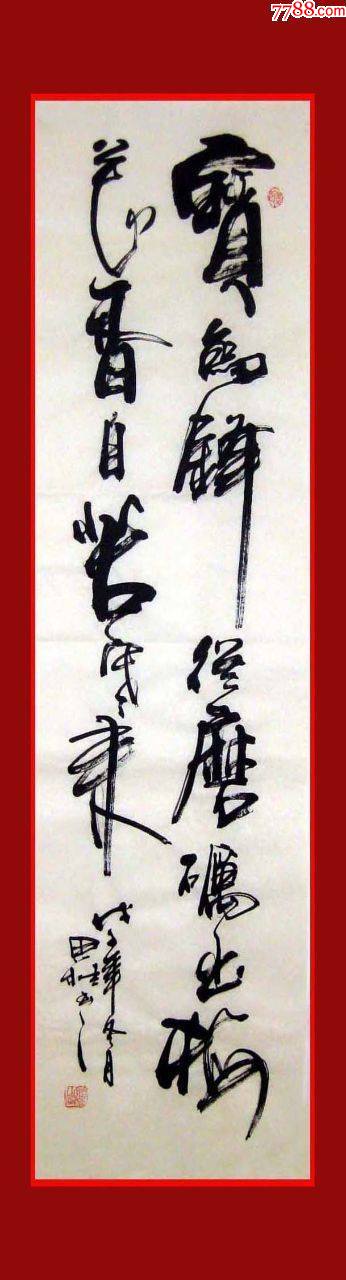 7788.com
寶劍鋒從磨礪出梅
花香自苦寒來
戊子年冬月